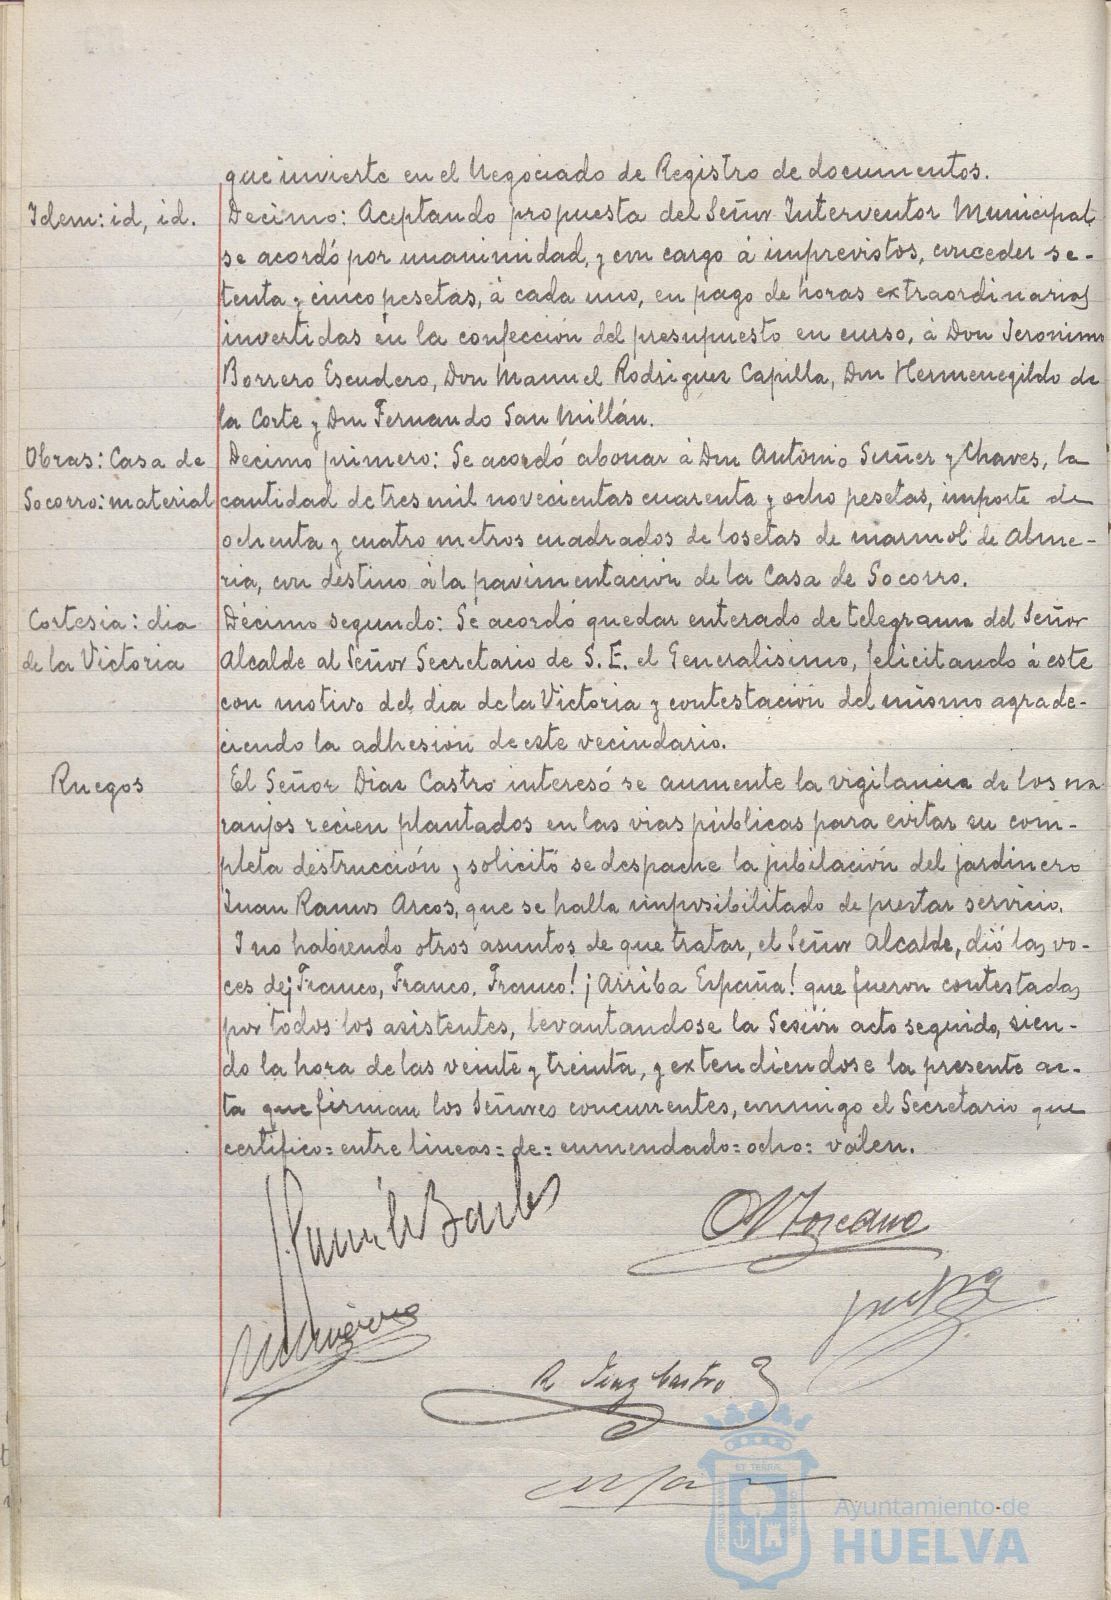 que invierte en el Negociado de Registro de documentos.
Idem: id, id.
Decimo: Aceptando propuesta del Señor Interventor Municipal
se acordó por unanimidad, y con cargo á imprevistos, conceder se-
tenta y cinco pesetas, á cada uno, en pago de horas extraordinarias
invertidas en la confección del presupuesto en curso, á Don Jeronimo
Borrero Escudero, Don Manuel Rodriguez Capilla, Don Hermenegildo de
la Corte y Don Fernando San Millán.
Obras: Casa de
Socorro: material
Decimo primero: Se acordó abonar á Don Antonio Suñer y Chaves, la
cantidad de tres mil novecientas cuarenta y ocho pesetas, importe de
ochenta y cuatro metros cuadrados de losetas de marmol de Alme-
ria, con destino á la pavimentación de la Casa de Socorro.
Cortesia: dia
de la Victoria
Décimo segundo: Se acordó quedar enterado de telegrama del Señor
Alcalde al Señor Secretario de S. E. el Generalisimo, felicitando á este
con motivo del dia de la Victoria y contestación del mismo agrade-
ciendo la adhesión de este vecindario.
Ruegos
El Señor Diaz Castro interesó se aumente la vigilancia de los na
ranjos recien plantados en las vias públicas para evitar su com-
pleta destrucción y solicitó se despache la jubilación del jardinero
Juan Ramos Arcos, que se halla imposibilitado de prestar servicio.
I no habiendo otros asuntos de que tratar, el Señor Alcalde, dió las vo-
ces de ¡Franco, Franco, Franco! ¡Arriba España! que fueron contestadas
por todos los asistentes, levantandose la Sesión acto seguido, sien-
do la hora de las veinte y treinta, y extendiendose la presente ac-
ta que firman los Señores concurrentes, conmigo el Secretario que
certifico= entre lineas= de= enmendado= ocho= valen.
R Diaz Castro
Ayuntamiento de
HUELVA